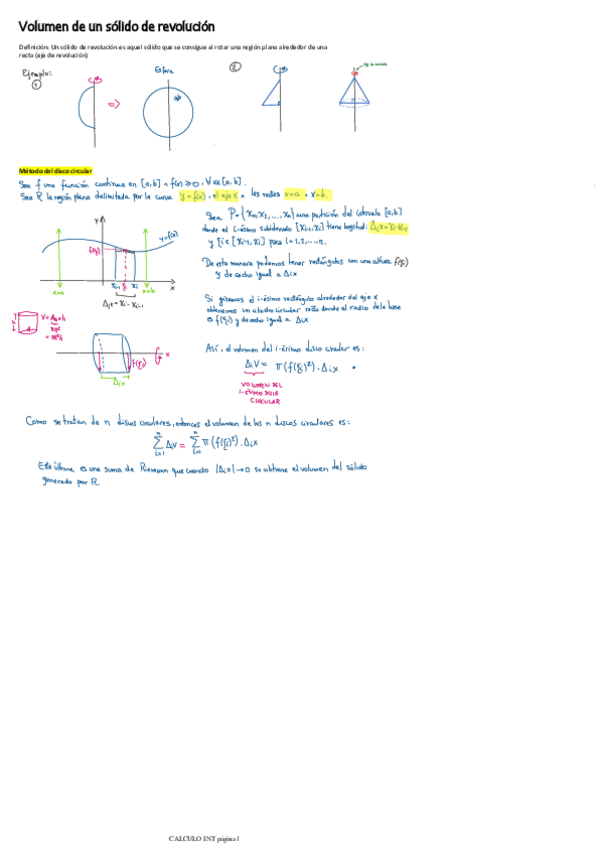 Volumen de un sólido de revolución
Definición: Un sólido de revolución es aquel sólido que se consigue al rotar una región plana alrededor de una
recta (eje de revolución)
Ejemplo:
①
Esfera
②
eje de
=>
Método del disco circular
Sea f una función continua en [a,b] ∧ f(x) ≥ 0, ∀x∈[a,b].
Sea R la región plana delimitada por la curva y=f(x), el eje x ∧ las rectas x=a ∧ x=b.
Sea P={x₀,x₁,...,xₙ} una partición del intervalo [a,b]
donde el i-ésimo subintervalo [xᵢ₋₁,xᵢ] tiene longitud: Δᵢx=xᵢ-xᵢ₋₁
y ξᵢ∈[xᵢ₋₁,xᵢ] para i=1,2,...,n.
y
y=f(x)
f(ξᵢ)
xᵢ₋₁ ξᵢ xᵢ
x=a
x=b
x
Δᵢx=xᵢ-xᵢ₋₁
De esta manera podemos tener rectángulos con una altura f(ξᵢ)
y de ancho igual a Δᵢx
Si giramos el i-ésimo rectángulo alrededor del eje x
obtenemos un cilindro circular recto donde el radio de la base
es f(ξᵢ) y de ancho igual a Δᵢx
h
A
V=A_B×h
πR²
=πR²h
x
f(ξᵢ)
Δᵢx
Así, el volumen del i-ésimo disco circular es:
ΔᵢV = π(f(ξᵢ)²).Δᵢx
VOLUMEN DEL
I-ÉSIMO DISCO
CIRCULAR
Como se tratan de n discos circulares, entonces el volumen de los n discos circulares es:
∑ᵢ₌₁ⁿ ΔᵢV = ∑ᵢ₌₁ⁿ π(f(ξᵢ)²).Δᵢx
Esta última es una suma de Riemann que cuando |Δᵢx|→0 se obtiene el volumen del sólido
generado por R.
CALCULO INT página 1